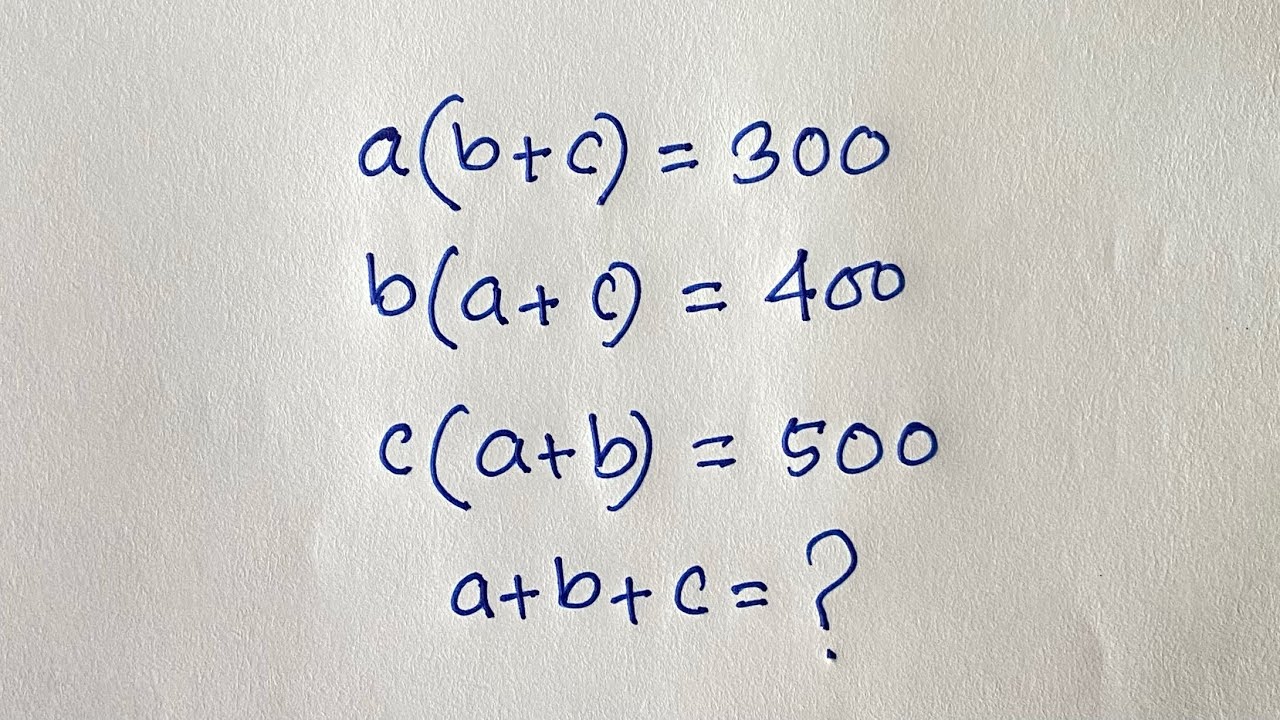 a(b+c) = 300
b(a+c) = 400
c(a+b) = 500
a+b+c = ?